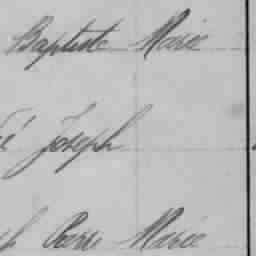 Baptiste Marie
é Joseph
h Pierre Marie